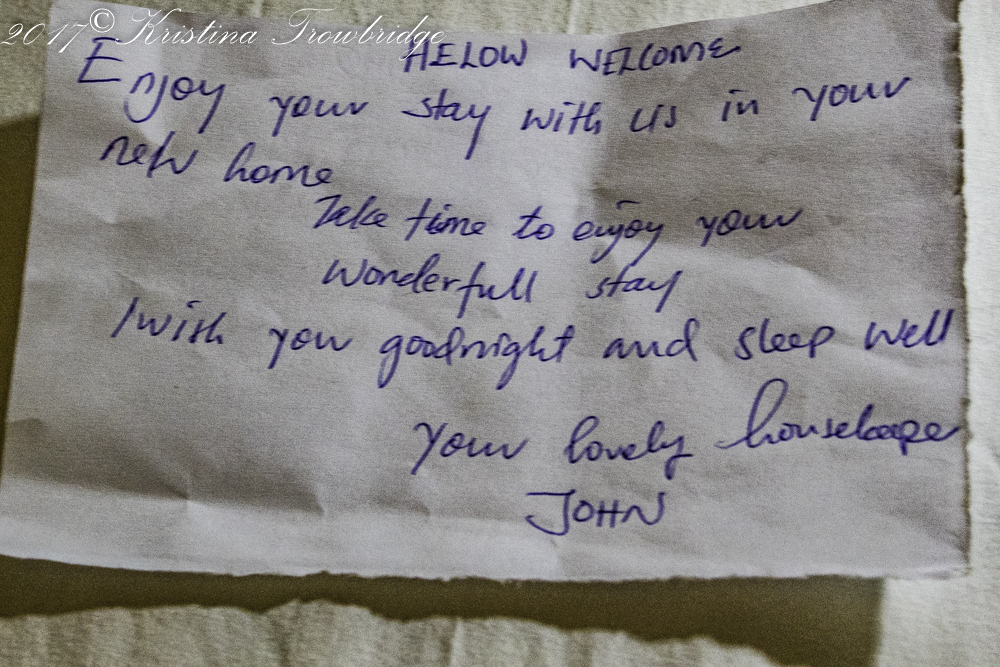 2017© Kristina Trowbridge
HELOW WELCOME
Enjoy your stay with us in your
new home
Take time to enjoy your
wonderfull stay
I wish you goodnight and sleep well
Your lovely housekeepe
JOHN